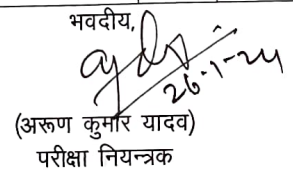 भवदीय,
26-1-24
(अरूण कुमार यादव)
परीक्षा नियन्त्रक